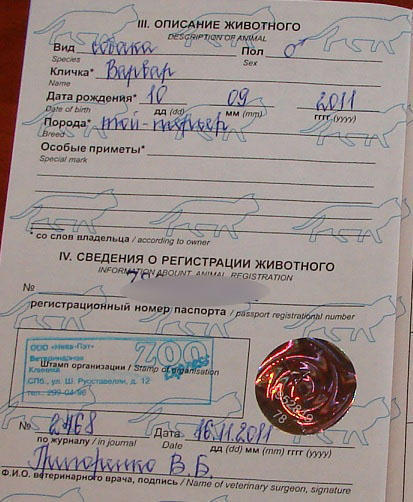 III. ОПИСАНИЕ ЖИВОТНОГО
DESCRIPTION OF ANIMAL
Вид собака Пол ♂
Species Sex
Кличка* Варвар
Name
Дата рождения* 10 09 2011
Date of birth дд (dd) мм (mm) гггг (yyyy)
Порода* той-терьер
Breed
Особые приметы*
Special mark
* со слов владельца / according to owner
IV. СВЕДЕНИЯ О РЕГИСТРАЦИИ ЖИВОТНОГО
INFORMATION ABOUNT ANIMAL REGISTRATION
№
регистрационный номер паспорта / passport registrational number
ООО «Нева-Пэт»
Ветеринарная
Клиника
ZOO
Штамп организации / Stamp of organisation
СПб., ул. Ш. Руставелли, д. 12
тел.: 299-04-96
78
№ 2468 Дата 16.11.2011
по журналу / in journal Date дд (dd) мм (mm) гггг (yyyy)
Григоренко В.Б.
Ф.И.О. ветеринарного врача, подпись / Name of veterinary surgeon, signature